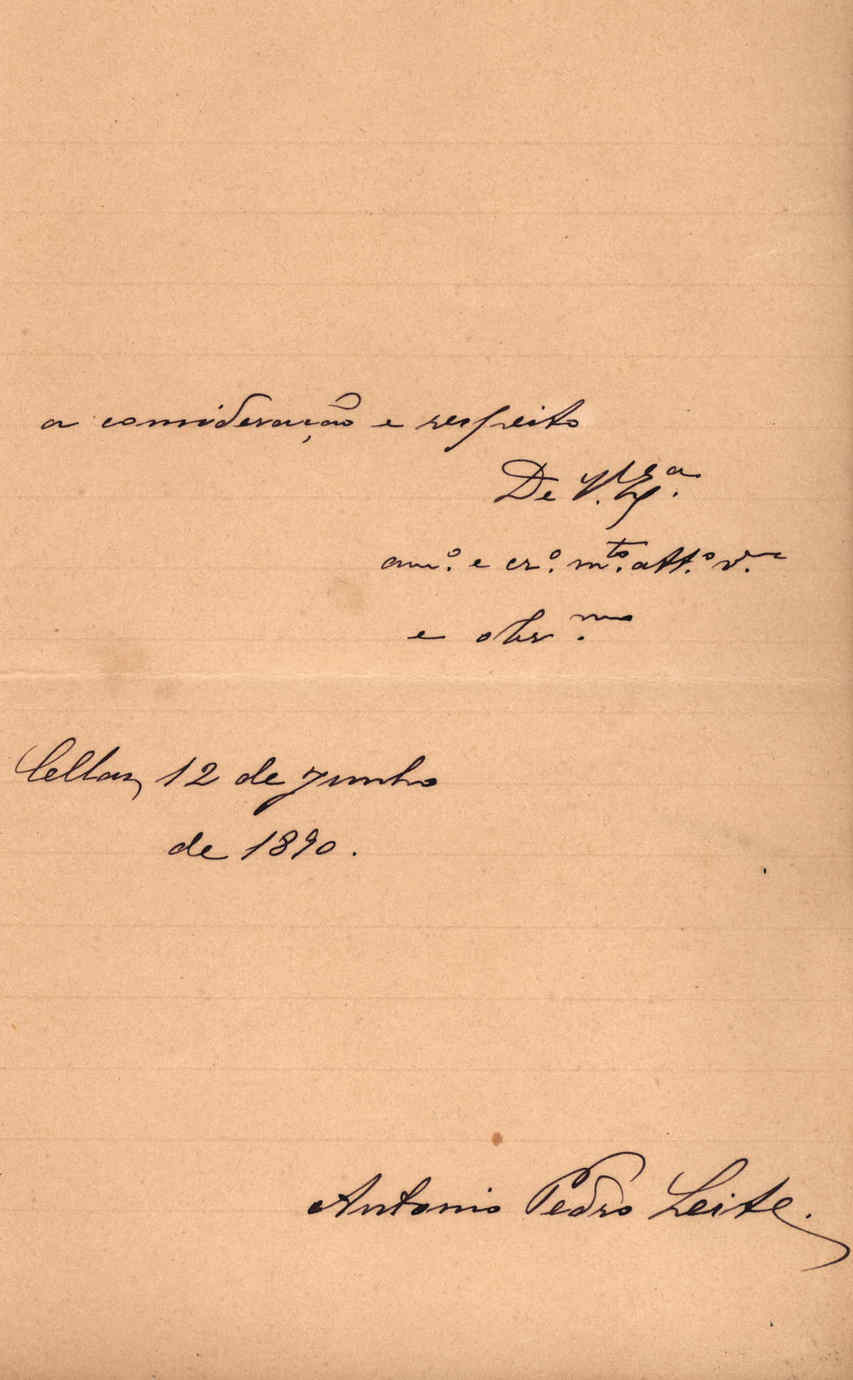 a consideração e respeito
De V. Ex.ª
am.º e cr.º m.to att.º v.
e obr.mo
Cellas, 12 de Junho
de 1890.
Antonio Pedro Leite.